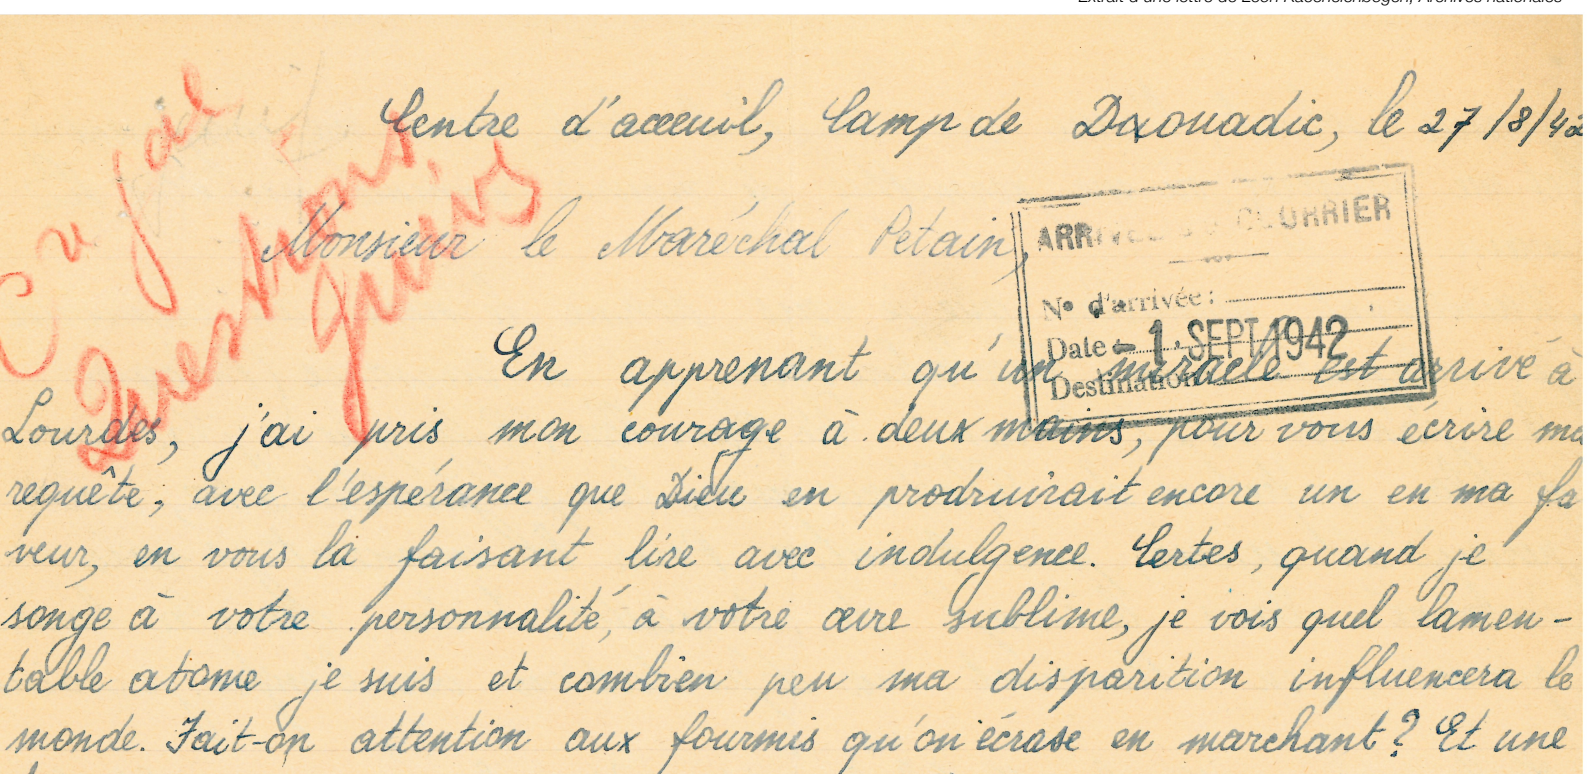 Extrait d'une lettre de Léon Kacenelenbogen, Archives nationales
Cv gal
Questions
juives
Centre d'acceuil, Camp de Daouadic, le 27/8/42
Monsieur le Maréchal Petain,
ARRIVÉE DU COURRIER
N° d'arrivée :
Date - 1. SEPT 1942
Destination
En apprenant qu'un miracle est arrivé à
Lourdes, j'ai pris mon courage à deux mains, pour vous écrire ma
requête, avec l'espérance que Dieu en prodruirait encore un en ma fa
veur, en vous la faisant lire avec indulgence. Certes, quand je
songe à votre personnalité, à votre œvre sublime, je vois quel lamen-
table atome je suis et combien peu ma disparition influencera le
monde. Fait-on attention aux fourmis qu'on écrase en marchant ? Et une